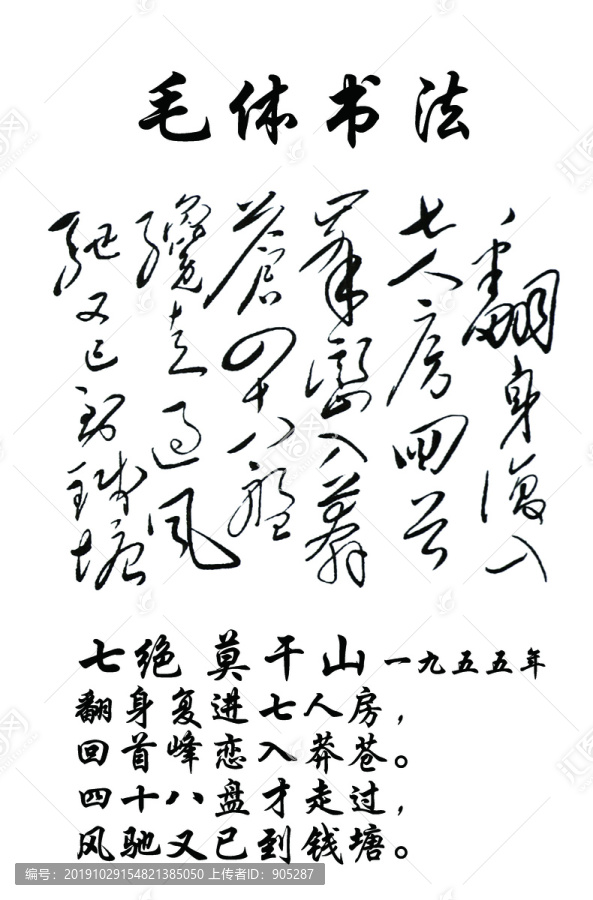 毛体书法
翻身復入
七人房回首
峯巒入莽
蒼四十八盤
纔走過风
驰又已到錢塘
七绝 莫干山 一九五五年
翻身复进七人房，
回首峰恋入莽苍。
四十八盘才走过，
风驰又已到钱塘。
编号：20191029154821385050 上传者ID：905287